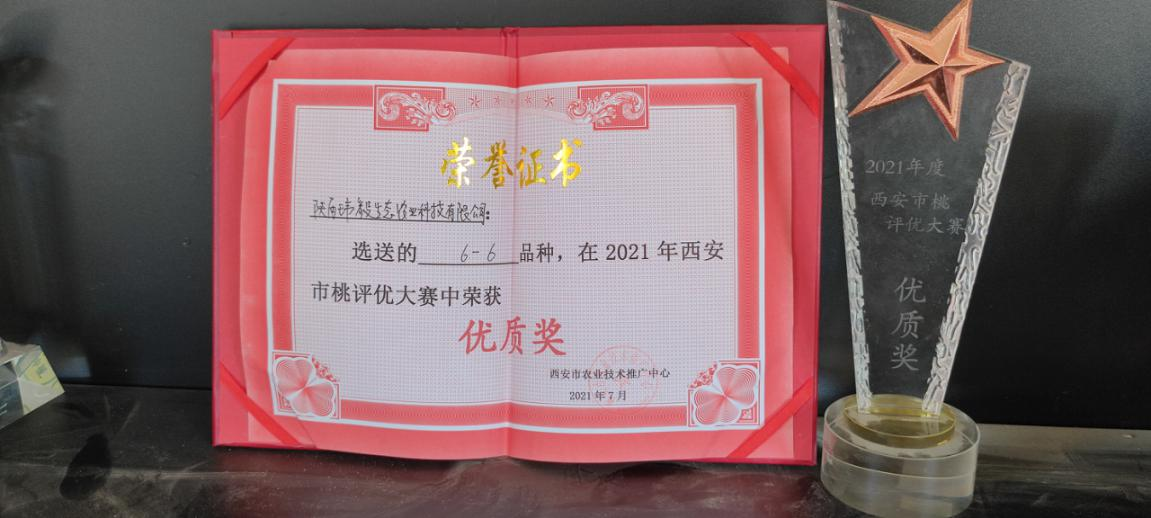 荣誉证书
陕西玮毅生态农业科技有限公司:
选送的 6-6 品种，在2021年西安
市桃评优大赛中荣获
优质奖
西安市农业技术推广中心
2021年7月
2021年度
西安市桃
评优大赛
优质奖